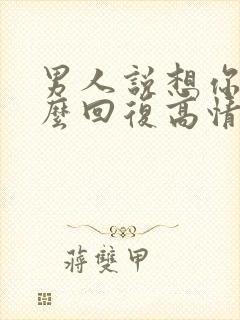 男人說想你
麼回復高情
蔣雙甲